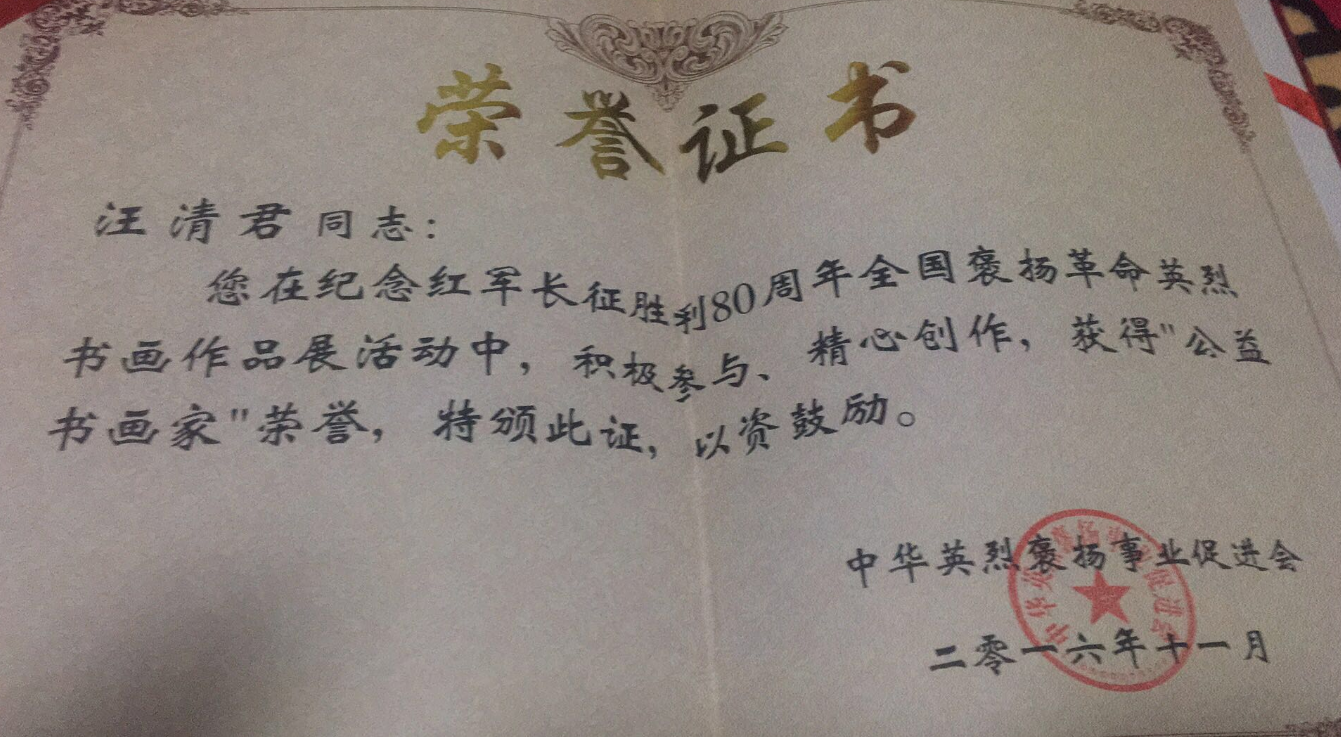 荣誉证书
汪清君同志：
您在纪念红军长征胜利80周年全国褒扬革命英烈
书画作品展活动中，积极参与、精心创作，获得"公益
书画家"荣誉，特颁此证，以资鼓励。
中华英烈褒扬事业促进会
二零一六年十一月